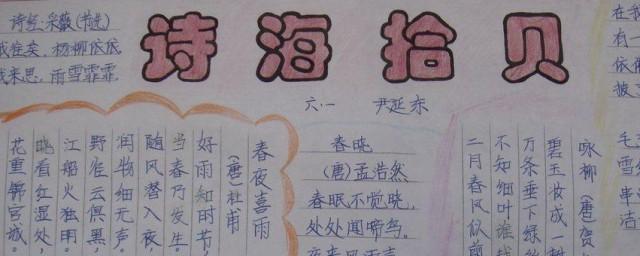 诗经·采薇(节选)
我往矣,杨柳依依
我来思,雨雪霏霏
诗海拾贝
六.一 尹延东
春夜喜雨
(唐)杜甫
好雨知时节,
当春乃发生。
随风潜入夜,
润物细无声。
野径云俱黑,
江船火独明。
晓看红湿处,
花重锦官城。
春晓
(唐)孟浩然
春眠不觉晓,
处处闻啼鸟。
夜来风雨声
咏柳 (唐)贺
碧玉妆成一树
万条垂下绿丝
不知细叶谁裁
二月春风似剪
在我
有一
依
披
毛
雪
串
洁